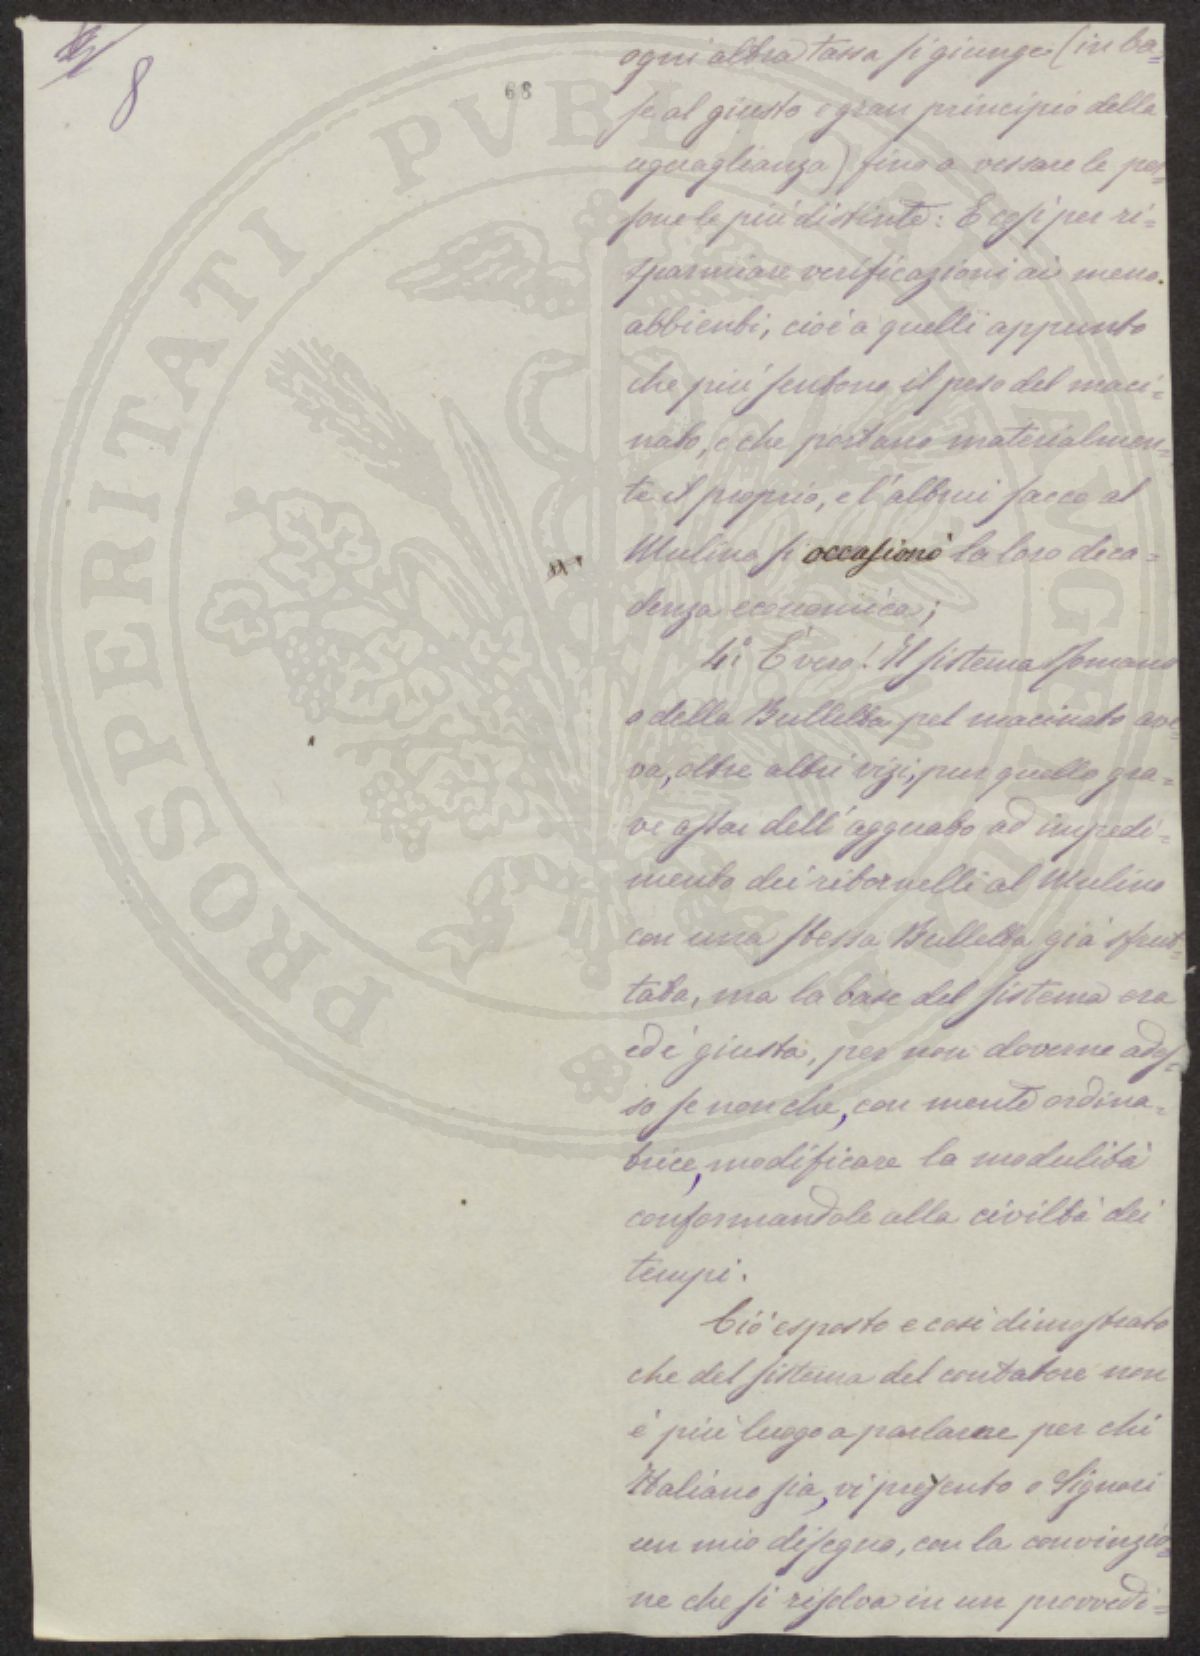 8
68
ogni altra tassa si giunge (in ba=
se al giusto e gran principio della
uguaglianza) fino a vessare le per=
sone le più distinte: E così per ri=
sparmiare verificazioni ai meno
abbienti, cioè a quelli appunto
che più sentono il peso del maci=
nato, e che portano materialmen=
te il proprio, e l'altrui sacco al
Mulino si occasionò la loro deca=
denza economica;
4º È vero! Il sistema Romano
o della Bulletta pel macinato ave=
va, oltre altri vizi, pur quello gra=
ve assai dell'agguato ad impedi=
mento dei ritornelli al Mulino
con una stessa Bulletta già sfrut=
tata, ma la base del sistema era
ed è giusta, per non doverne ades=
so se non che, con mente ordina=
trice, modificare la modulità
conformandole alla civiltà dei
tempi.
Ciò esposto e così dimostrato
che del sistema del contatore non
è più luogo a parlarne per chi
Italiano sia, vi presento o Signori
un mio disegno, con la convinzio=
ne che si risolva in un provvedi=
PROSPERITATI PVBLICAE AVGENDAE